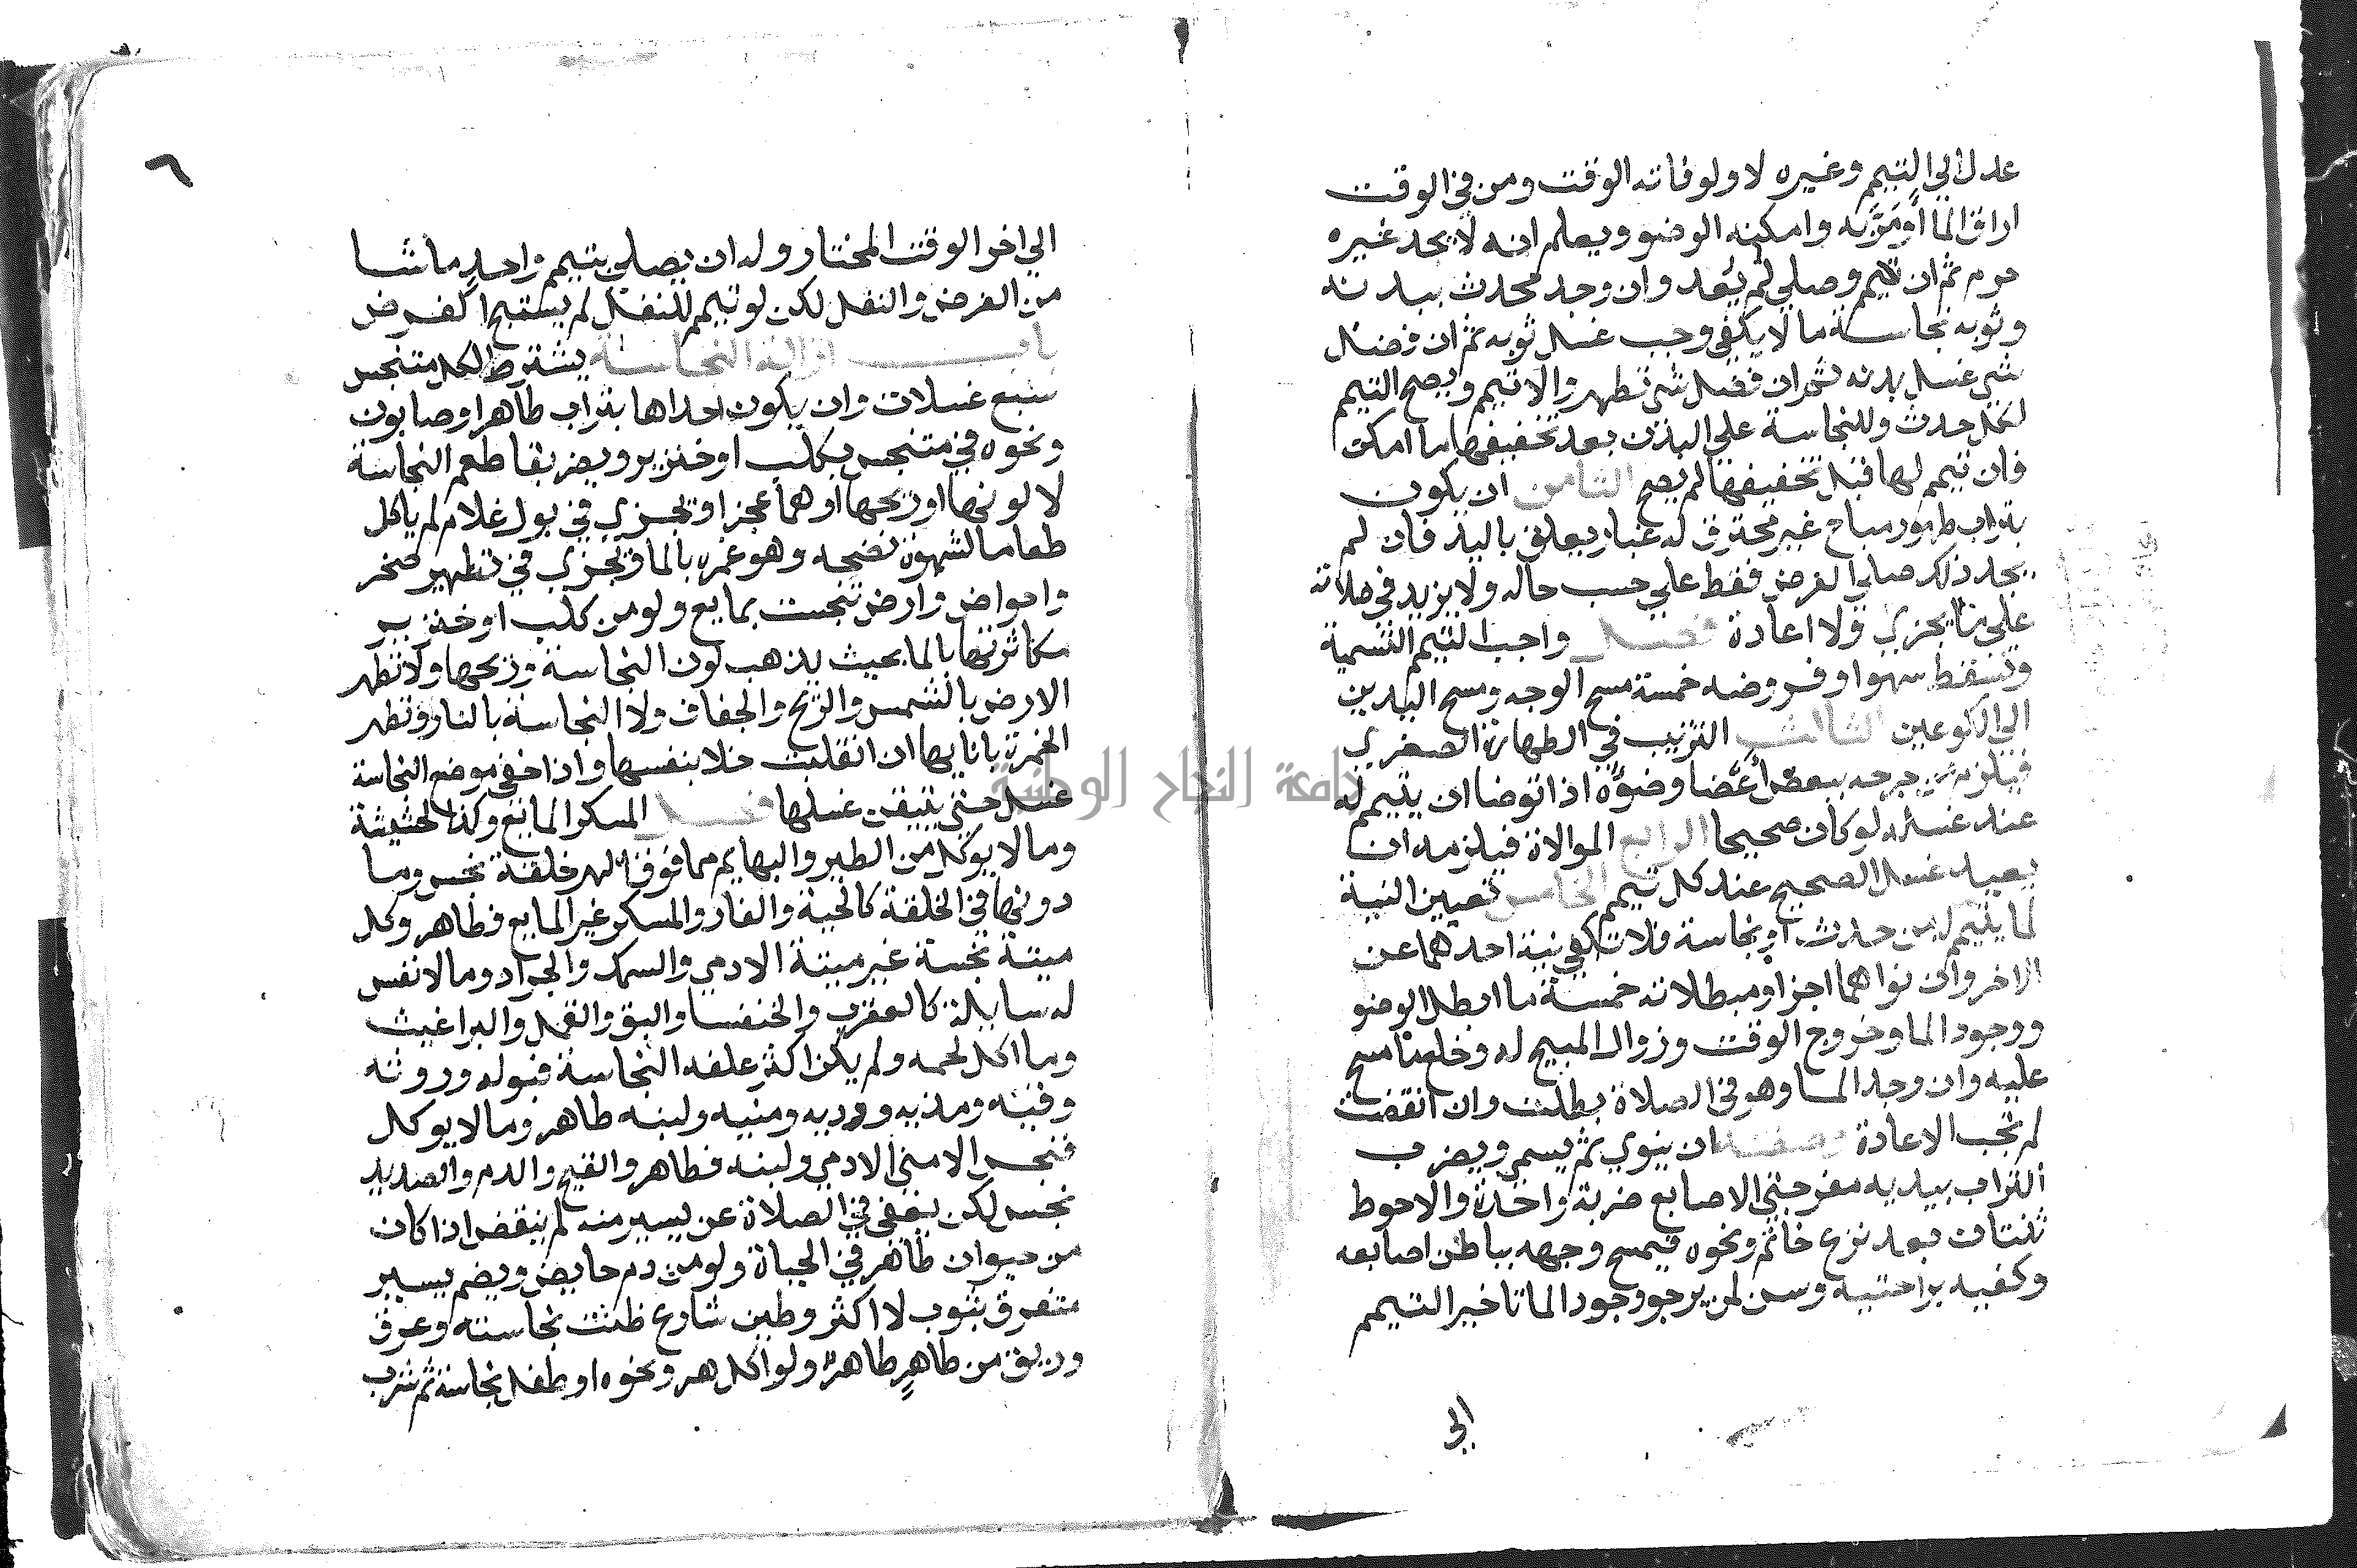 عدل الي التيمم وغيره لا ولو فاته الوقت ومن في الوقت
اراق الما او مر به وامكنه الوضو ويعلم انه لا يجد غيره
حرم ثم ان تيمم وصلي لم يعد وان وجد محدث ببدنه
وثوبه نجاسة ما لا يكفي وجب غسل ثوبه ثم ان فضل
شي غسل بدنه ثم ان فضل شي تطهر والا تيمم ويصح التيمم
لكل حدث وللنجاسة علي البدن بعد تخفيفها ما امكن
فان تيمم لها قبل تخفيفها لم يصح الثامن ان يكون
بتراب طهور مباح غير محترق له غبار يعلق باليد فان لم
يجد ذلك صلي الفرض فقط علي حسب حاله ولا يزيد في صلاته
علي ما يجزي ولا اعادة فصل واجب التيمم التسمية
وتسقط سهوا وفروضه خمسة مسح الوجه ومسح اليدين
الي الكوعين الثالث الترتيب في الطهارة الصغري
فيلزم من جرحه ببعض اعضا وضوئه اذا توضا ان يتيمم له
عند غسله لو كان صحيحا الرابع الموالاة فيلزمه ان
يعيد غسل الصحيح عند كل تيمم الخامس تعيين النية
لما يتيمم له من حدث او نجاسة فلا تكفي نية احدهما عن
الاخر وان نواهما اجزا ومبطلاته خمسة ما ابطل الوضو
ووجود الما وخروج الوقت وزوال المبيح له وخلع ما مسح
عليه وان وجد الما وهو في الصلاة بطلت وان انقضت
لم تجب الاعادة وصفته ان ينوي ثم يسمي ويضرب
التراب بيديه مفرجتي الاصابع ضربة واحدة والاحوط
ثنتان بعد نزع خاتم ونحوه فيمسح وجهه بباطن اصابعه
وكفيه براحتيه وسن لمن يرجو وجود الما تاخير التيمم
الي
٦
الي اخر الوقت المختار وله ان يصلي بتيمم واحد ما شا
من الفرض والنفل لكن لو تيمم للنفل لم يستبح الفرض
باب ازالة النجاسة يشترط لكل متنجس
سبع غسلات وان يكون احداها بتراب طاهر او صابون
ونحوه في متنجس بكلب او خنزير ويضر بقا طعم النجاسة
لا لونها او ريحها او هما عجزا ويجزي في بول غلام لم ياكل
طعاما لشهوة نضحه وهو غمره بالما ويجزي في تطهير صخر
واحواض وارض تنجست بمايع ولو من كلب او خنزير
مكاثرتها بالما بحيث يذهب لون النجاسة وريحها ولا تطهر
الارض بالشمس والريح والجفاف ولا النجاسة بالنار وتطهر
الخمرة بانايها ان انقلبت خلا بنفسها واذا خفي موضع النجاسة
غسل حتي يتيقن غسلها فصل المسكر المايع وكذا الحشيشة
وما لا يوكل من الطير والبهايم مما فوق الهر خلقة نجس وما
دونها في الخلقة كالحية والفار والمسكر غير المايع فطاهر وكل
ميتة نجسة غير ميتة الادمي والسمك والجراد وما لا نفس
له سايلة كالعقرب والخنفسا والبق والقمل والبراغيث
وما اكل لحمه ولم يكن اكثر علفه النجاسة فبوله وروثه
وقيئه ومذيه ووديه ومنيه ولبنه طاهر وما لا يوكل
فنجس الا مني الادمي ولبنه فطاهر والقيح والدم والصديد
نجس لكن يعفي في الصلاة عن يسير منه لم ينقض اذا كان
من حيوان طاهر في الحياة ولو من دم حايض ويضم يسير
متفرق بثوب لا اكثر وطين شارع ظنت نجاسته وعرق
وريق من طاهر طاهر ولو اكل هر ونحوه او طفل نجاسة ثم شرب
جامعة النجاح الوطنية